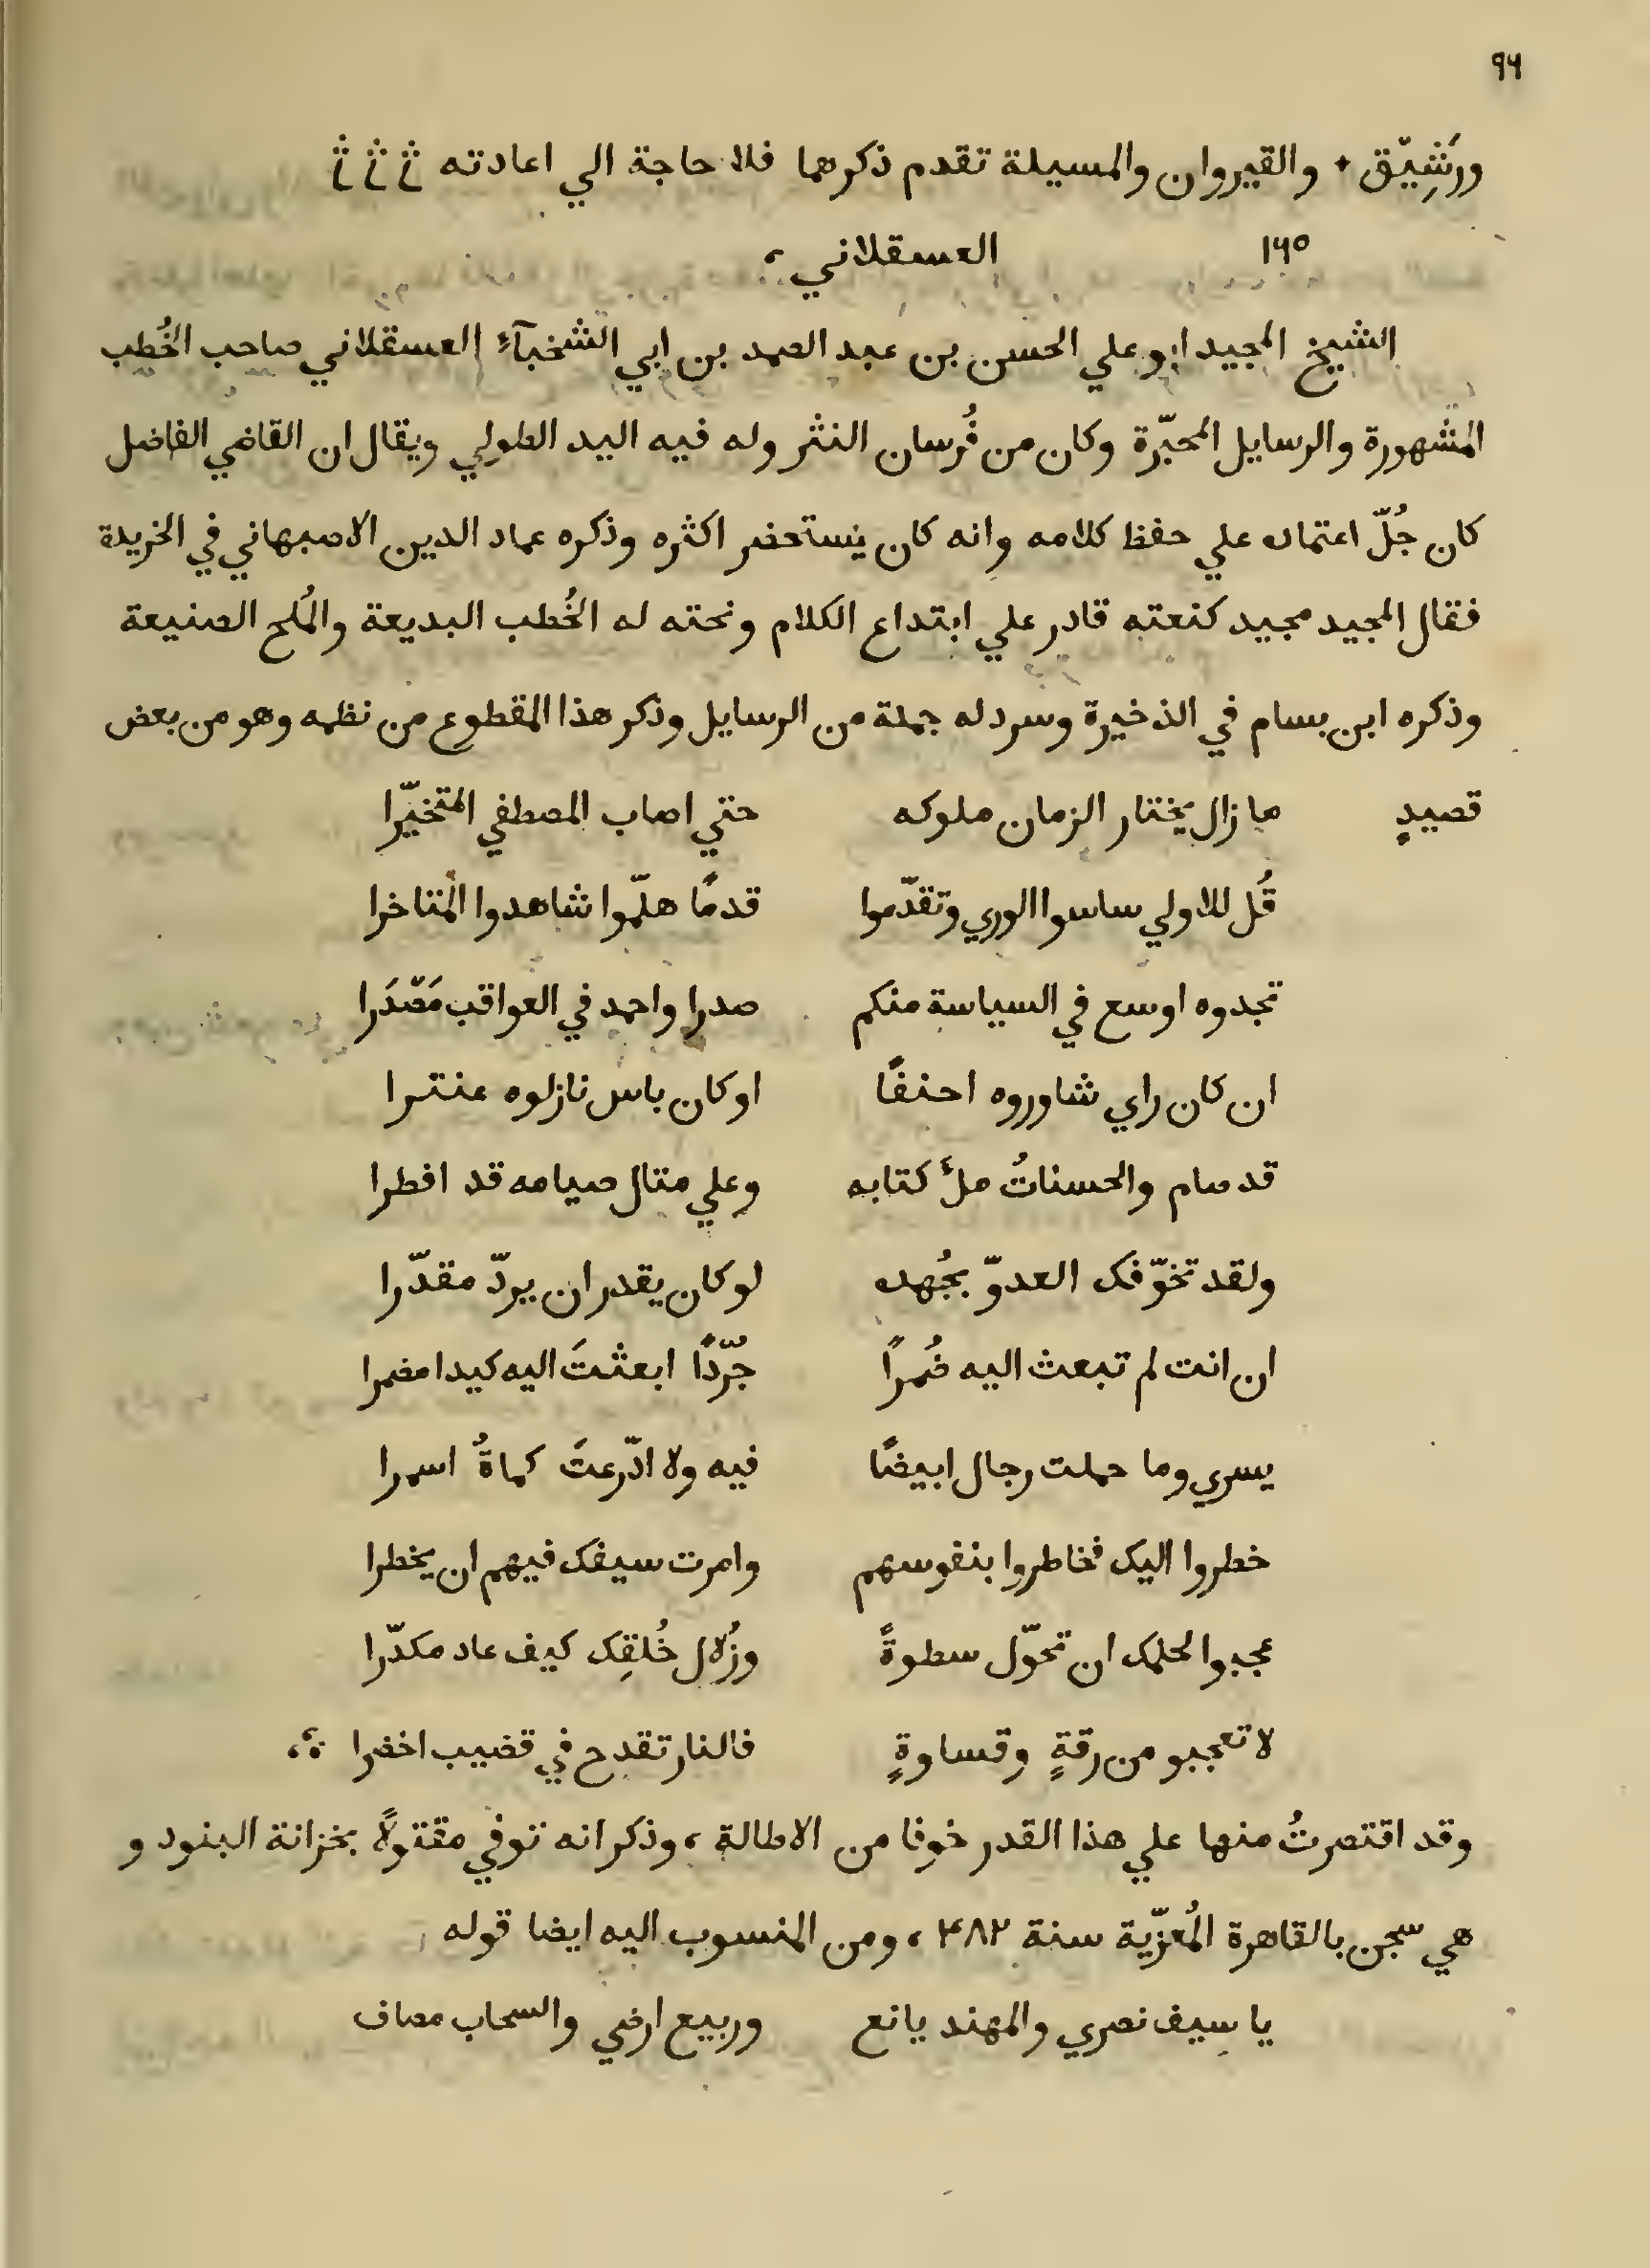 ٩٦
ورَشِيّق ٭ والقيروان والمسيلة تقدم ذكرهما فلا حاجة الي اعادته
١٦٥ العسقلاني ،
الشيخ المجيد ابو علي الحسن بن عبد الصمد بن ابي الشخبآء العسقلاني صاحب الخُطب
المشهورة والرسايل المحبّرة وكان من فُرسان النثر وله فيه اليد الطولي ويقال ان القاضي الفاضل
كان جُلّ اعتماده علي حفظ كلامه وانه كان يستحضر اكثره وذكره عماد الدين الاصبهاني في الخريدة
فقال المجيد مجيد كنعته قادر علي ابتداع الكلام ونحته له الخُطب البديعة والمُلح الصنيعة
وذكره ابن بسام في الذخيرة وسرد له جملة من الرسايل وذكر هذا المقطوع من نظمه وهو من بعض
قصيدٍ ما زال يختار الزمان ملوكه حتي اصاب المصطفي المتخيّرا
قُل للاولي ساسوا الوري وتقدّموا قدمًا هلمّوا شاهدوا المتاخرا
تجدوه اوسع في السياسة منكم صدرا واحمد في العواقب مَصْدَرا
ان كان راي شاوروه احنفًا او كان باس نازلوه عنترا
قد صام والحسناتُ ملْ كتابه وعلي مثال صيامه قد افطرا
ولقد تخوّفك العدوّ بجُهده لو كان يقدر ان يردّ مقدّرا
ان انت لم تبعث اليه ضُمرًا جُرّدًا ابعثتَ اليه كيدا مضمرا
يسري وما حملت رجال ابيضًا فيه ولا ادّرعتَ كماةُ اسمرا
خطروا اليك فخاطروا بنفوسهم وامرت سيفك فيهم ان يخطرا
عجبوا لحلمك ان تحوّل سطوةً وزُلال خُلقِك كيف عاد مكدّرا
لا تعجبو من رقةٍ وقساوةٍ فالنار تقدح في قضيب اخضرا
وقد اقتصرتُ منها علي هذا القدر خوفا من الاطالة ، وذكر انه توفي مقتولًا بخزانة البنود و
هي سجن بالقاهرة المُعزّية سنة ٤٨٢ ، ومن المنسوب اليه ايضا قوله
يا سيف نصري والمهند يانع وربيع ارضي والسحاب مصاف